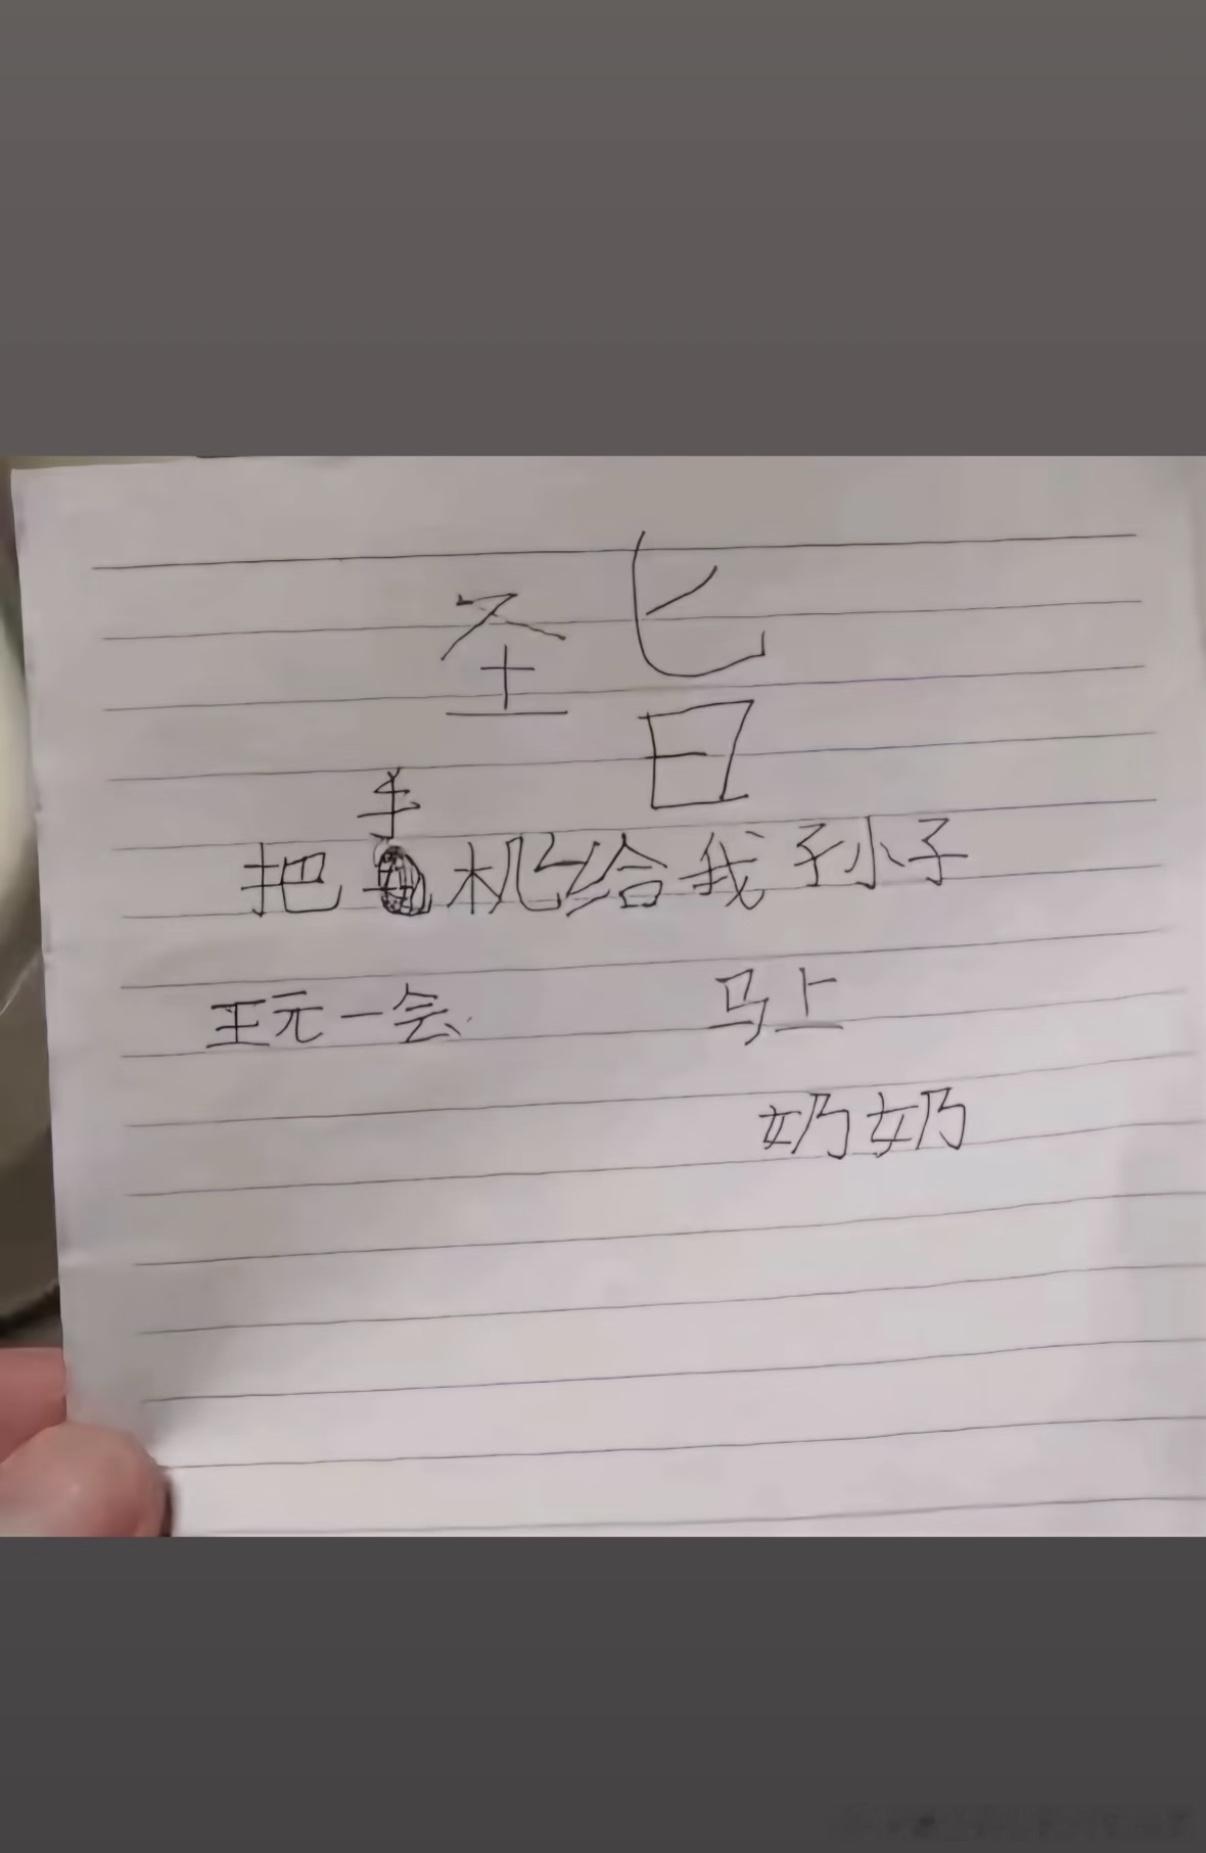 圣旨
手
把机给我孙子
王元一会 马上
奶奶